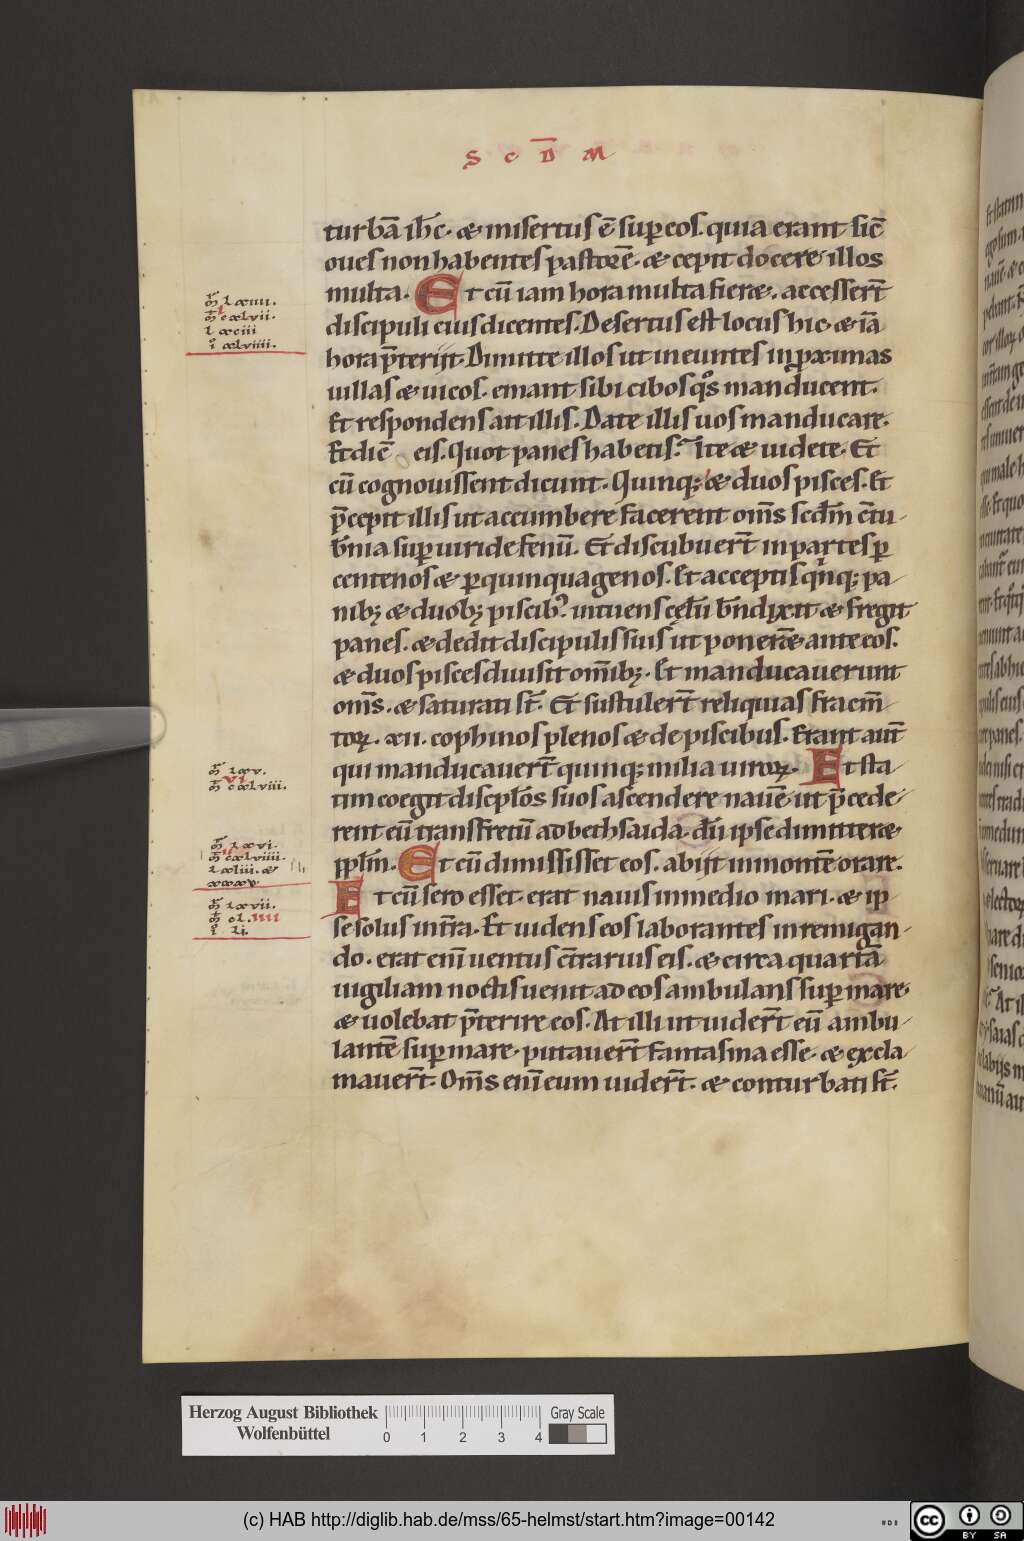 S C D̄ M
turbā ih̄c. & misertus ē sup eos. quia erant sic̄
oues non habentes pastorē. & cepit docere illos
multa. Et cū iam hora multa fieret. accesser̄t
discipuli eius dicentes. Desertus est locus hic. & iā
hora p̄teriit. Dimitte illos ut in euntes in proximas
uillas & uicos. emant sibi cibos q̊s manducent.
Et respondens ait illis. Date illis uos manducare.
Et dic̄ eis. Quot panes habetis? Ite & uidete. Et
cū cognouissent dicunt. Quinq; & duos pisces. Et
p̄cepit illis ut accumbere facerent om̄s scdm̄ c̄tu
b̄nia sup uiride fenū. Et discubuer̄t in partes p
centenos & p quinquagenos. Et acceptis q̄nq; pa
nib; & duob; piscib; intuens cęlū b̄ndixit & fregit
panes. & dedit discipulis suis ut poner̄& ante eos.
& duos pisces diuisit om̄ib;. Et manducauerunt
om̄s. & saturati s̄t. Et sustuler̄t reliquias fracm̄
torꝝ. xii. cophinos plenos & de piscibus. Erant aut̄
qui manducauer̄t quinq; milia uirorꝝ. Et sta
tim coegit discipl̄os suos ascendere nauē ut p̄cede
rent eū trans fretū ad bethsaida. dū ipse dimitter&
pplm̄. Et cū dimississet eos. abiit in montē orare.
Et cū sero esset. erat nauis in medio mari. & ip
se solus in t̄ra. Et uidens eos laborantes in remigan
do. erat eni uentus c̄trarius eis. & circa quartā
uigiliam noctis uenit ad eos ambulans sup mare.
& uolebat p̄terire eos. At illi ut uider̄t eū ambu
lantē sup mare. putauer̄t fantasma esse. & excla
mauer̄t. Om̄s eni eum uider̄t. & conturbati s̄t.
m̄ lxiiii.
m̄ cxlvii.
l xciii
i xlviiii.
m̄ lxv.
vi
m̄ cxlviii.
m̄ lxvi.
m̄ cxlviiii.
l xliii. &
xxxv.
m̄ lxvii.
m̄ cl. iiii
i li.
Herzog August Bibliothek
Wolfenbüttel
0 1 2 3 4
Gray Scale
(c) HAB http://diglib.hab.de/mss/65-helmst/start.htm?image=00142
cc BY SA